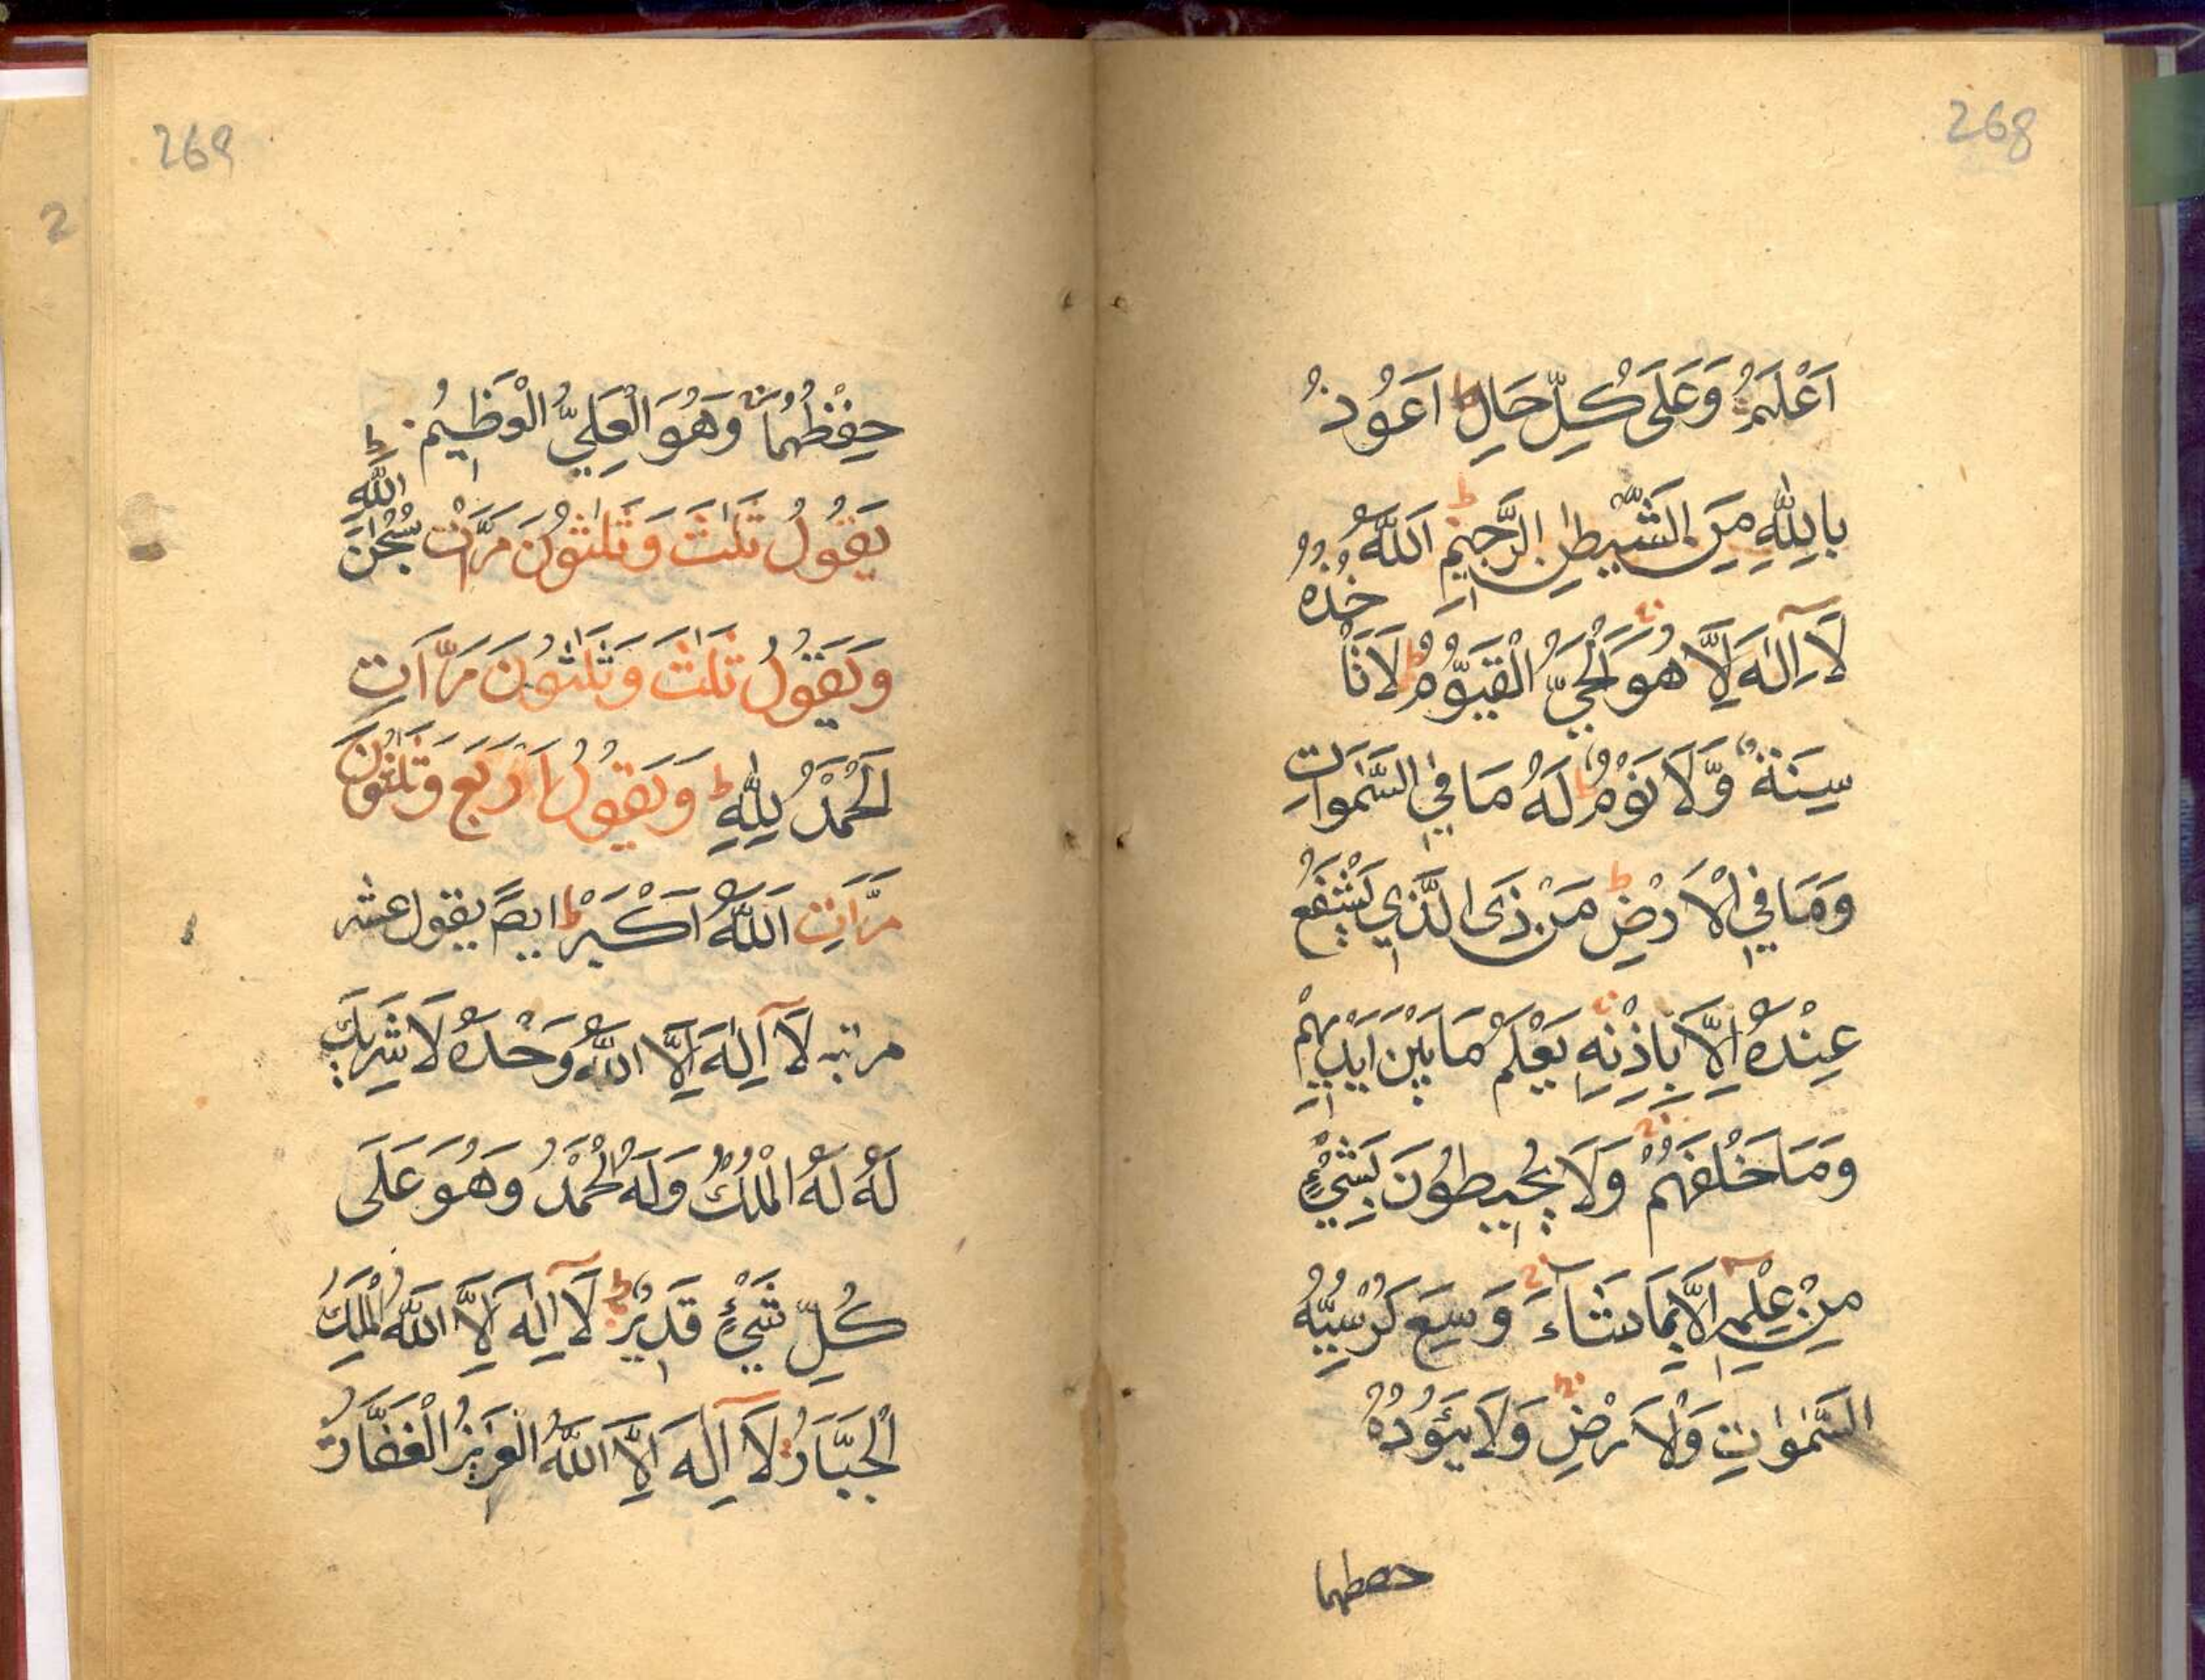 268
اَعْلَمُ وَعَلَى كُلِّ حَالٍ ط اَعُوذُ
بِاللّٰهِ مِنَ الشَّيْطٰنِ الرَّجِيْمِ ط اَللّٰهُ
لَآ اِلٰهَ اِلَّا هُوَ الْحَيُّ الْقَيُّوْمُ ط لَا تَاْخُذُهُ
سِنَةٌ وَّلَا نَوْمٌ ط لَهُ مَا فِي السَّمٰوَاتِ
وَمَا فِي الْاَرْضِ ط مَنْ ذَى الَّذِي يَشْفَعُ
عِنْدَهُ اِلَّا بِاِذْنِهِ يَعْلَمُ مَا بَيْنَ اَيْدِيْهِمْ
وَمَا خَلْفَهُمْ وَلَا يُحِيْطُوْنَ بِشَيْءٍ
مِنْ عِلْمِهِ اِلَّا بِمَا شَآءَ وَسِعَ كُرْسِيُّهُ
السَّمٰوٰتِ وَالْاَرْضِ وَلَا يَئُوْدُهُ
حفظهما
269
حِفْظُهُمَا وَهُوَ الْعَلِيُّ الْعَظِيْمُ ط
يَقُوْلُ ثَلٰثَ وَثَلٰثُوْنَ مَرَّاتْ سُبْحٰنَ اللّٰهِ
وَيَقُوْلُ ثَلٰثَ وَثَلٰثُوْنَ مَرَّاتِ
اَلْحَمْدُ لِلّٰهِ ط وَيَقُوْلُ اَرْبَعَ وَثَلٰثُوْنَ
مَرَّاتِ اَللّٰهُ اَكْبَرْ ط ايضً يقول عشر
مرتبه لَآ اِلٰهَ اِلَّا اللّٰهُ وَحْدَهُ لَا شَرِيْكَ
لَهُ لَهُ الْمُلْكُ وَلَهُ الْحَمْدُ وَهُوَ عَلَى
كُلِّ شَيْءٍ قَدِيْرٌ ط لَآ اِلٰهَ اِلَّا اللّٰهُ الْمَلِكُ
الْجَبَّارُ لَآ اِلٰهَ اِلَّا اللّٰهُ الْعَزِيْزُ الْغَفَّارُ
2